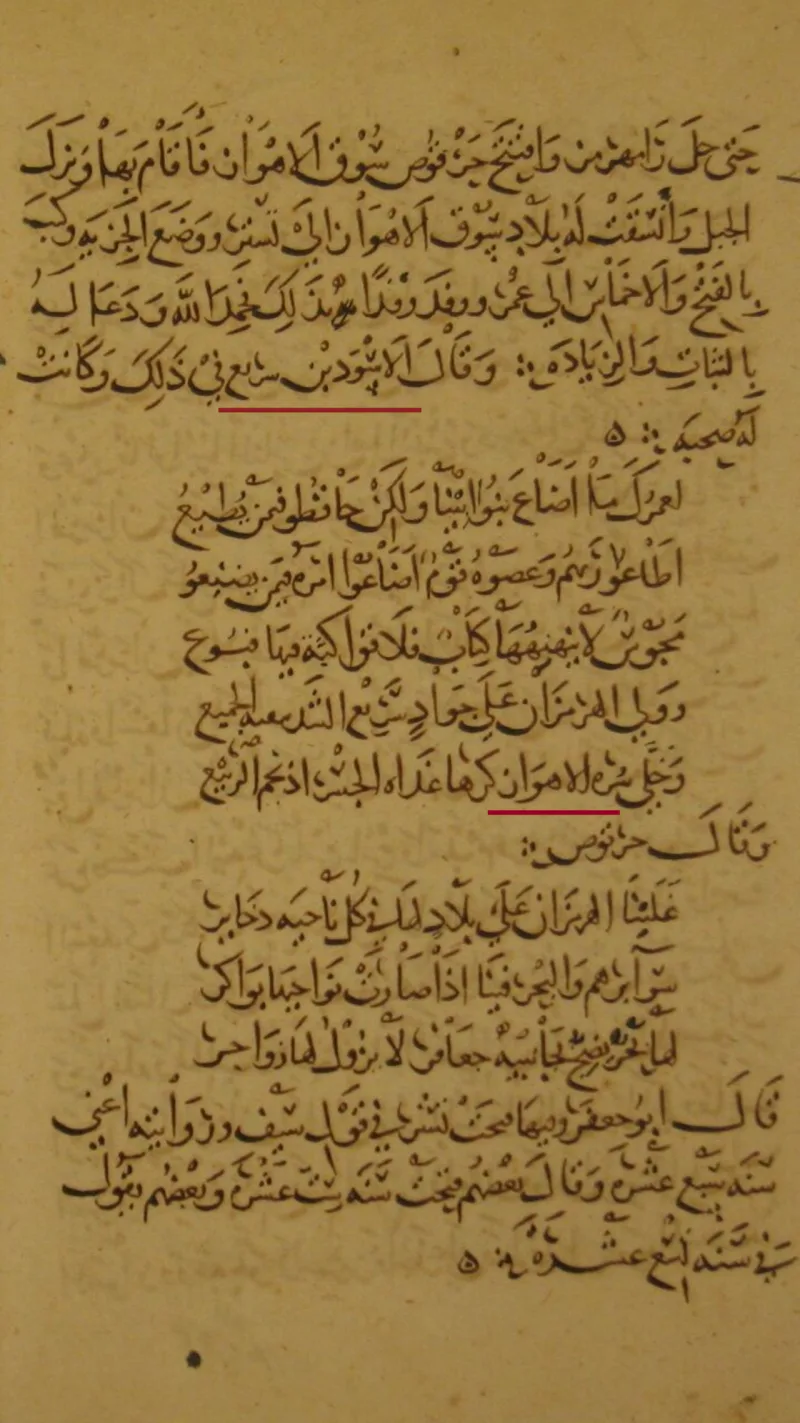 حتى حل رامهرمز وافتتح حرقوص سوق الاهواز فاقام بها ونزل
الجبل واتسقت له بلاد سوق الاهواز الى تستر ووضع الجزيه وكتب
بالفتح والاخماس الى عمر ووفد وفدا بذلك فحمد الله ودعا له
بالثبات والزيادة وقال الاسود بن سريع في ذلك وكانت
له صحبة
لعمرك ما اضاع بنو ابينا ولكن حافظوا فيمن يطيع
اطاعوا ربهم وعصوه قوم اضاعوا امره فيمن يضيع
مجوس لا ينهنهها كتاب فلاقوا كبة فيها قبوع
وولى الهرمزان على جواد سريع الشد الجميع
وخلى سره الاهواز كرها غداه الجسر اذ نجم الربيع
وقال حرقوص
غلبنا الهرمزان على بلاد لها في كل ناحيه ذخاير
سوا برهم والبحر فيها اذا صارت نواجبها بواكر
لها بحر يعج بجانبيه جعافر لا يزال لها زواخر
قال ابو جعفر وفيها فتحت تستر في قول سيف وروايته اعني
سنه سبع عشرة وقال بعضهم فتحت سنه ست عشرة وبعضهم يقول
في سنه تسع عشره